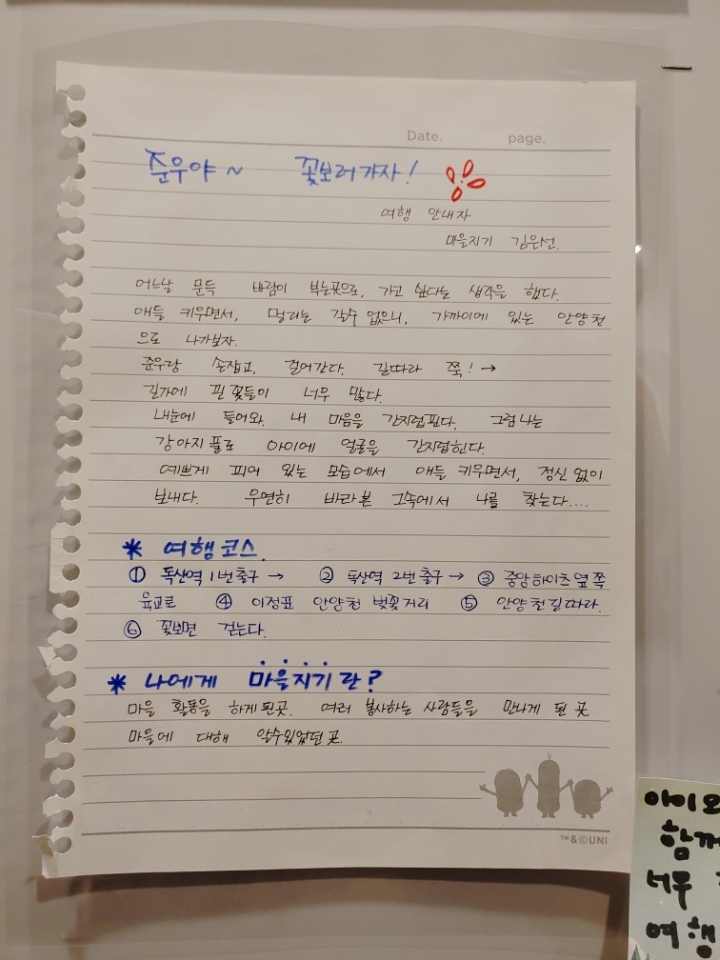 Date. page.
준우야 ~ 꽃보러가자!
여행 안내자
마을지기 김은선.
어느날 문득 바람이 부는곳으로, 가고 싶다는 생각을 했다.
애들 키우면서, 멀리는 갈수 없으니, 가까이에 있는 안양천
으로 나가보자.
준우랑 손잡고, 걸어간다. 길따라 쭉! →
길가에 핀 꽃들이 너무 많다.
내눈에 들어와. 내 마음을 간지럽핀다. 그럼 나는
강아지풀로 아이에 얼굴을 간지럽힌다.
예쁘게 피어 있는 모습에서 애들 키우면서, 정신 없이
보내다. 우연히 바라본 그속에서 나를 찾는다....
* 여행코스.
① 독산역 1번출구 → ② 독산역 2번출구 → ③ 중앙하이츠 옆쪽
육교로 ④ 이정표 안양천 벚꽃거리 ⑤ 안양천길따라.
⑥ 꽃보면 걷는다.
* 나에게 마을지기란?
마을 활동을 하게된곳. 여러 봉사하는 사람들을 만나게 된 곳
마을에 대해 알수있었던 곳.
™&ⓒUNI
아이와
함께
너무
여행